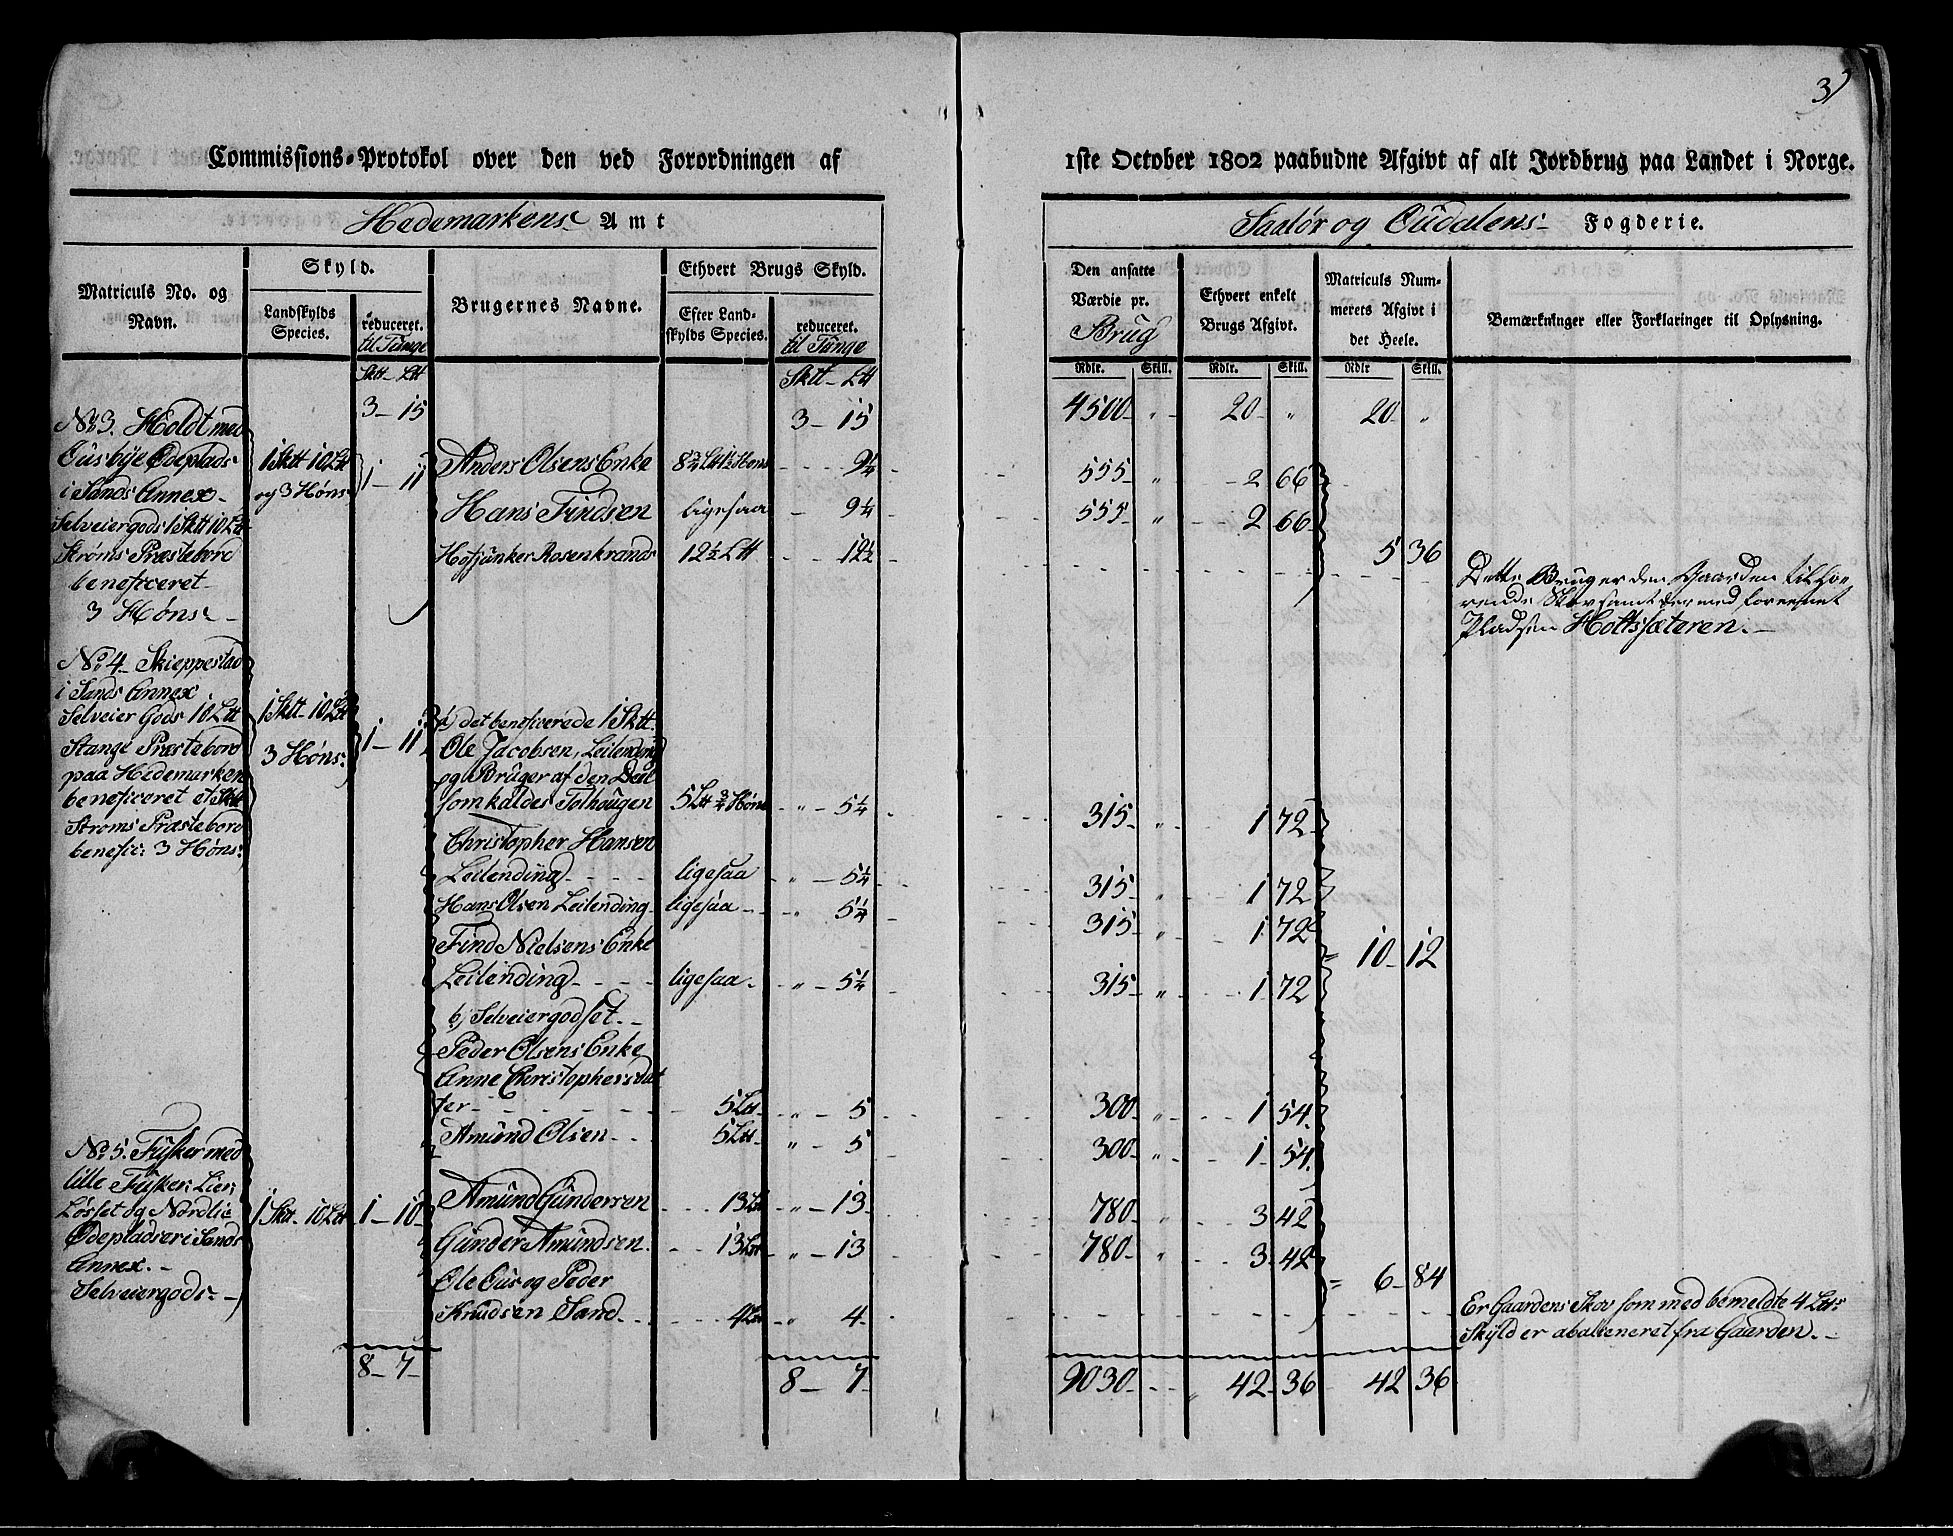 3)
Commissions-Protokol over den ved Forordningen af
1ste October 1802 paabudne Afgivt af alt Jordbrug paa Landet i Norge.
Hedemarkens Amt
Saalør og Oudalens Fogderie.
Matriculs No. og Navn.
Skyld.
Landskylds Species.
reduceret. til Tunge
Brugernes Navne.
Ethvert Brugs Skyld.
Efter Landskylds Species.
reduceret. til Tunge
Den ansatte Værdie pr. Brug
Ethvert enkelt Brugs Afgivt.
Matriculs Nummerets Afgivt i det Heele.
Bemærkninger eller Forklaringer til Oplysning.
Sktt - Ltt
Sktt - Ltt
Rdlr. Skill. Rdlr. Skill. Rdlr Skill.
3 - 15 3 - 15 4500 " 20 " 20 "
No 3. Holdt med
Ousbye Ødeplads
i Sands Annex
Selveiergods 1 Sktt 10 Ltt
Strøms Præstebord
beneficeret
3 Høns
1 Sktt 10 Ltt
og 3 Høns
1 - 11
Anders Olsens Enke 8¾ Ltt 1½ Høns 9¼ 555 " 2 66
Hans Findsen ligesaa 9¼ 555 " 2 66
Hofjunker Rosenkrands 12½ Ltt 12½
5 36
Dette Brug er den Gaarden tilhø-
rende Skov samt dermed foreenet
Pladsen Holtssæteren.
No 4 Skieppestad
i Sands Annex
Selveier Gods 10 Ltt
Stange Præstebord
paa Hedemarken
beneficeret 1 Sktt
Strøms Præstebord
benefic: 3 Høns:
1 Sktt - 10 Ltt
3 Høns:
1 - 11
a) det beneficerede 1 Sktt.
Ole Jacobsen, Leilending
og Bruger af den Deel
som kaldes Tolhougen 5 Ltt ¾ Høns " - 5¼ 315 " 1 72
Christopher Hansen
Leilending ligesaa " - 5¼ 315 " 1 72
Hans Olsen Leilending ligesaa " 5¼ 315 " 1 72
Find Nielsens Enke
Leilending ligesaa " - 5¼ 315 " 1 72
10 12
b) Selveiergodset.
Peder Olsens Enke
Anne Christophersdat
ter 5 Ltt " - 5 300 " 1 54
Amund Olsen 5 Ltt " - 5 300 " 1 54
No 5. Fusker med
lille Fusker, Lier,
Løsset og Nordlie
Ødepladser i Sands
Annex.
Selveiergods
1 Sktt - 10 Ltt
1 - 10
Amund Gundersen 13 Ltt " - 13 780 " 3 42
Gunder Amundsen 13 Ltt " - 13 780 " 3 42
Ole Ous og Peder
Knudsen Sand 4 Ltt " - 4
6 84
Er Gaardens Skov som med bemeldte 4 Ltt
Skyld er abalieneret fra Gaarden.
8 - 7 8 - 7 9030 42 36 42 36